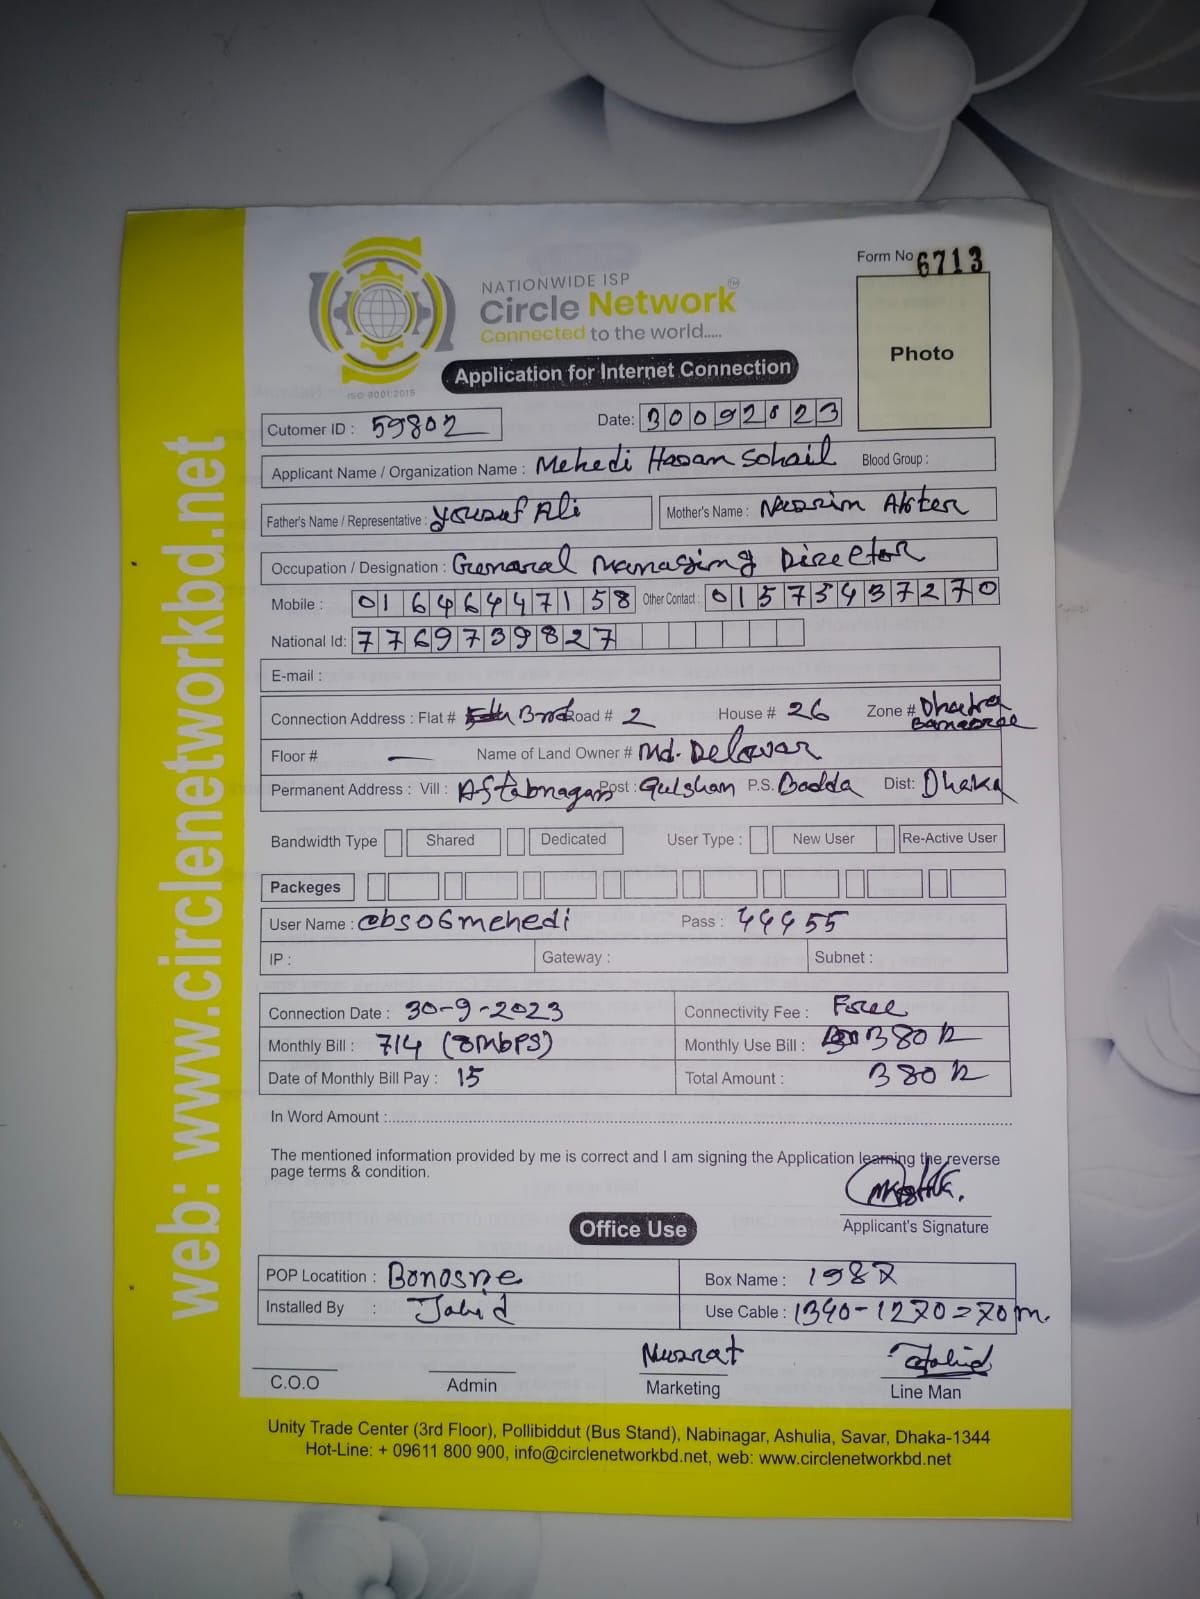 Form No 6713
NATIONWIDE ISP
Circle Network TM
Connected to the world.....
ISO 9001:2015
Application for Internet Connection
Photo
Cutomer ID : 59802
Date: 30092023
Applicant Name / Organization Name : Mehedi Hasan Sohail Blood Group :
Father's Name / Representative : Yousuf Ali Mother's Name : Nasrin Akter
Occupation / Designation : Genaral Managing Director
Mobile : 01646447158 Other Contact : 01575437270
National Id: 7769739827
E-mail :
Connection Address : Flat # 3rd Road # 2 House # 26 Zone # Dhaka
Banasree
Floor # — Name of Land Owner # Md. Delowar
Permanent Address : Vill : Aftabnagar Post : Gulshan P.S. Badda Dist: Dhaka
Bandwidth Type Shared Dedicated User Type : New User Re-Active User
Packeges
User Name : cbs06mehedi Pass : 44455
IP : Gateway : Subnet :
Connection Date : 30-9-2023 Connectivity Fee : Free
Monthly Bill : 714 (8Mbps) Monthly Use Bill : 380
Date of Monthly Bill Pay : 15 Total Amount : 380
In Word Amount :
The mentioned information provided by me is correct and I am signing the Application learning the reverse
page terms & condition.
Applicant's Signature
Office Use
POP Locatition : Bonosree Box Name : 1987
Installed By : Jahid Use Cable : 1340-1270=70m.
Nusrat Jahid
C.O.O Admin Marketing Line Man
Unity Trade Center (3rd Floor), Pollibiddut (Bus Stand), Nabinagar, Ashulia, Savar, Dhaka-1344
Hot-Line: + 09611 800 900, info@circlenetworkbd.net, web: www.circlenetworkbd.net
web: www.circlenetworkbd.net